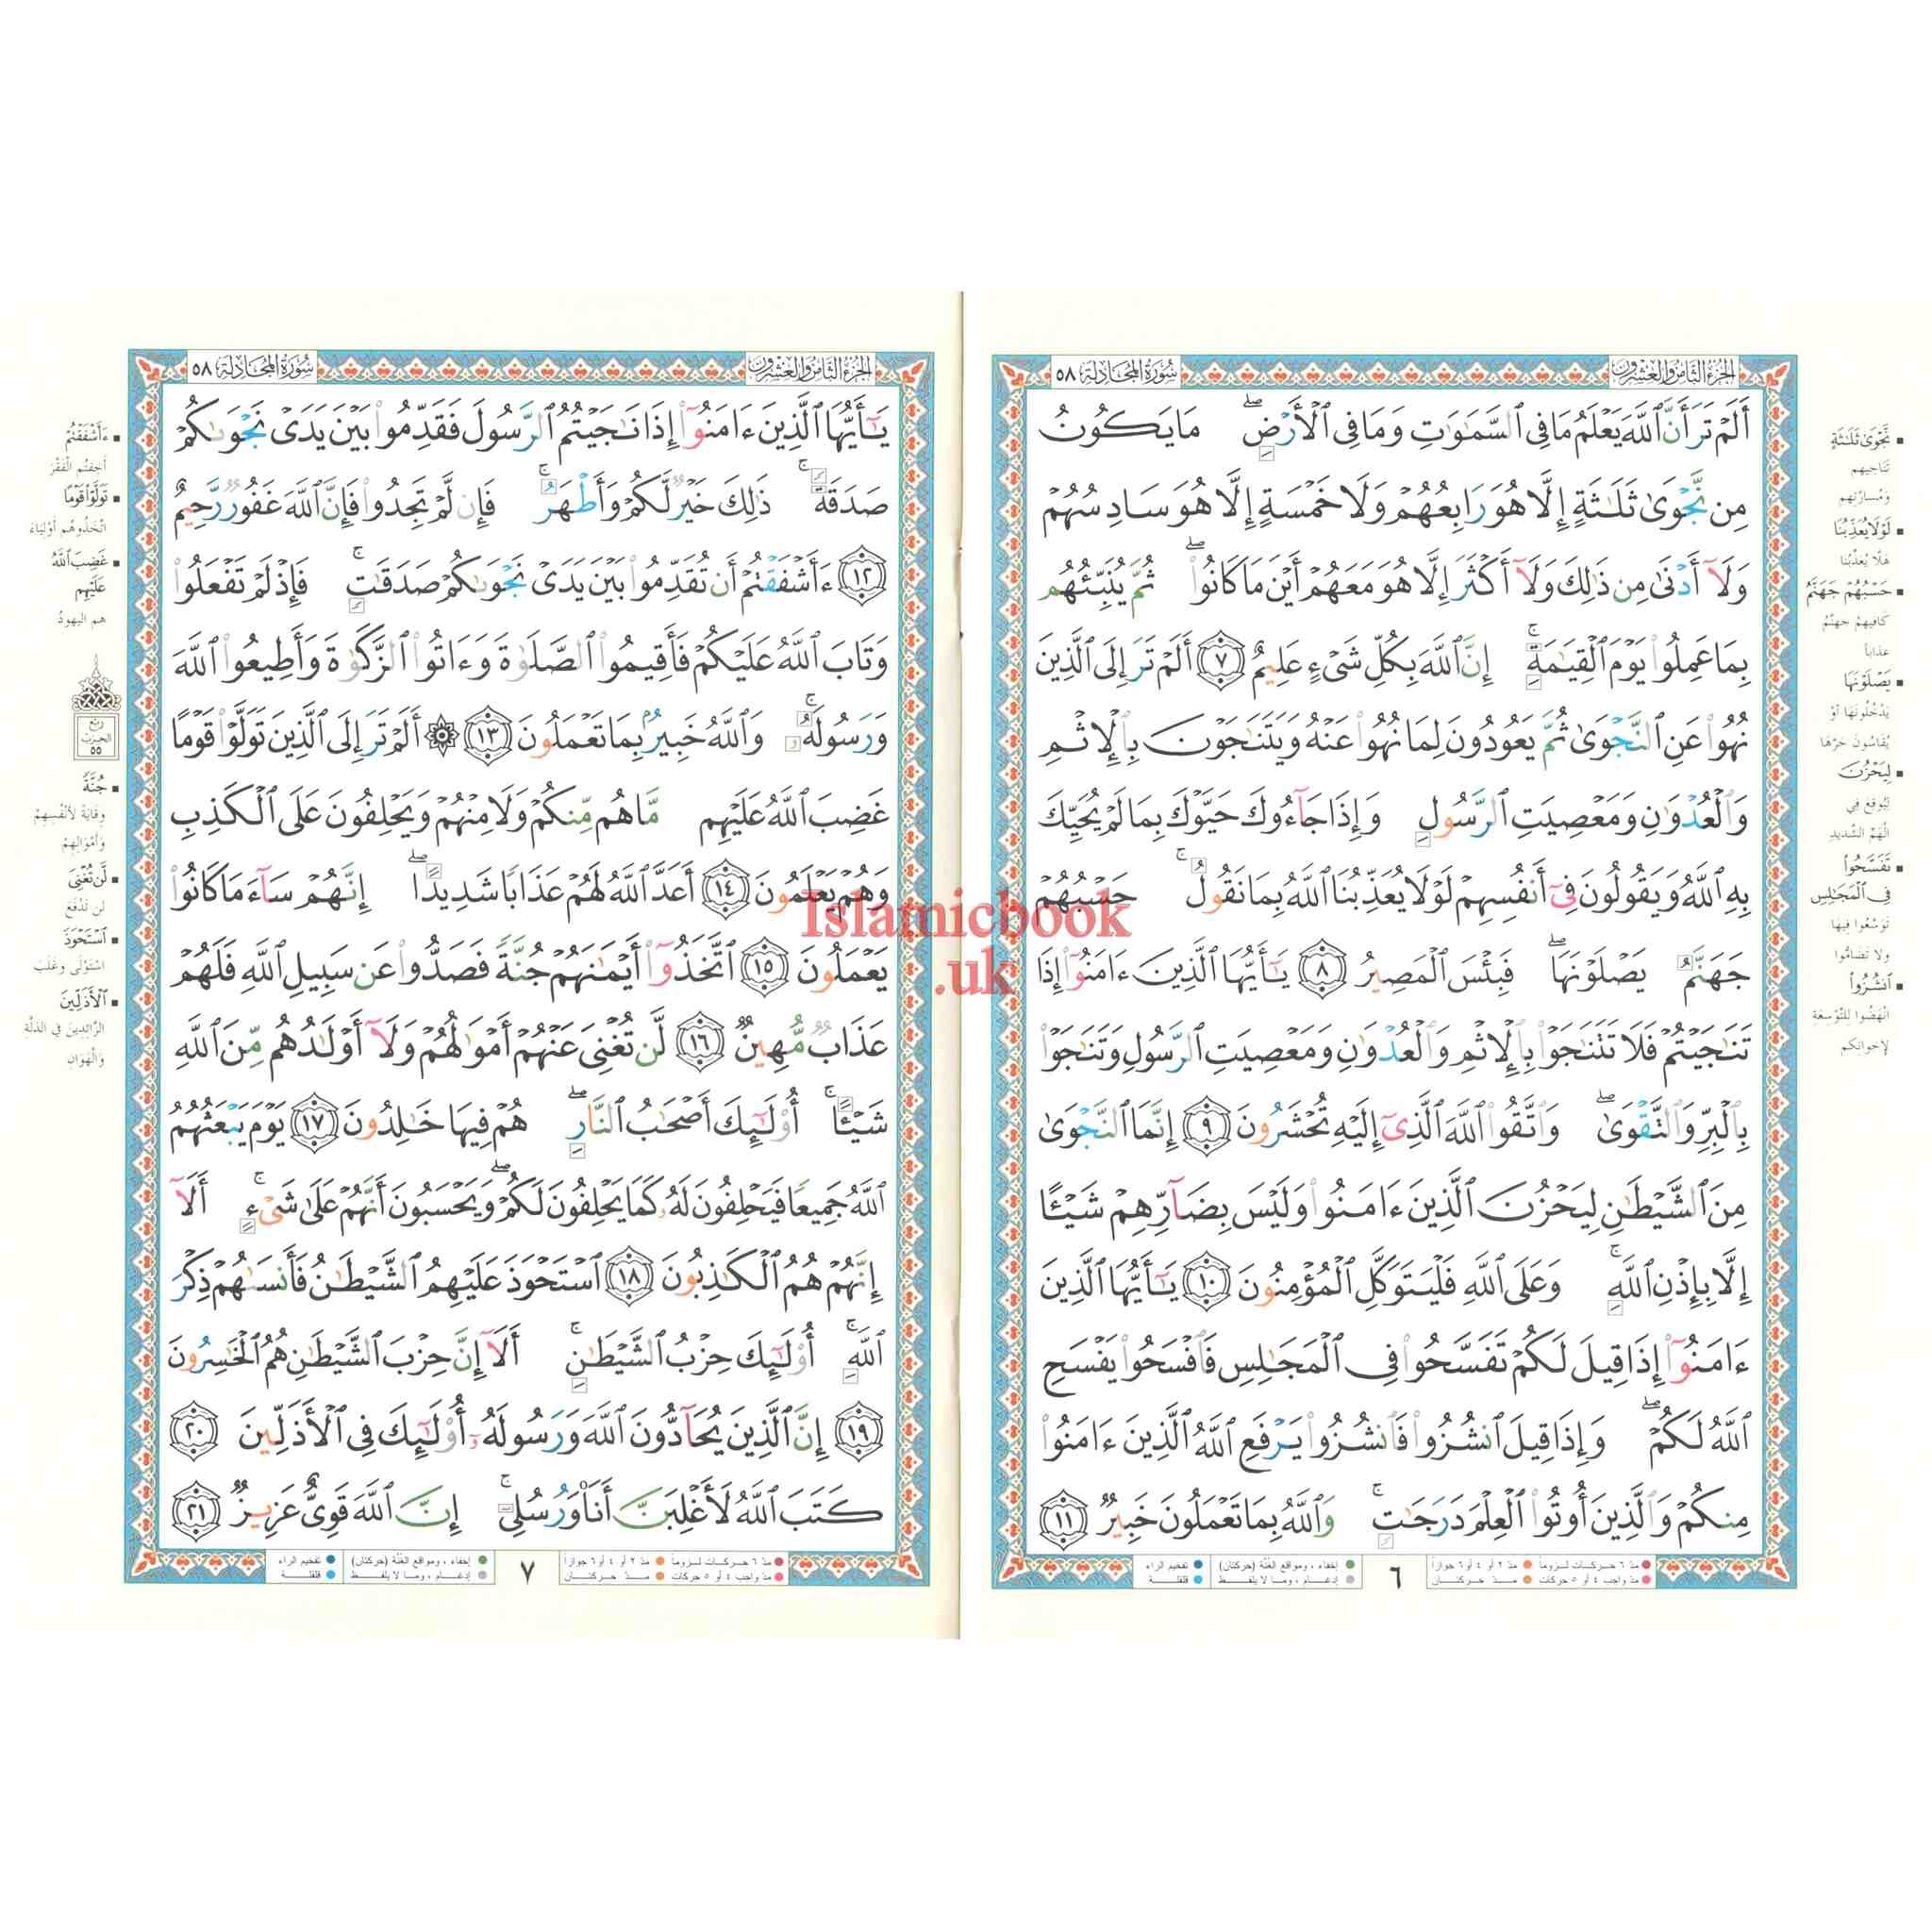 الجزء الثامن والعشرون
سورة المجادلة ٥٨
أَلَمْ تَرَ أَنَّ ٱللَّهَ يَعْلَمُ مَا فِى ٱلسَّمَٰوَٰتِ وَمَا فِى ٱلْأَرْضِ ۖ مَا يَكُونُ
مِن نَّجْوَىٰ ثَلَٰثَةٍ إِلَّا هُوَ رَابِعُهُمْ وَلَا خَمْسَةٍ إِلَّا هُوَ سَادِسُهُمْ
وَلَآ أَدْنَىٰ مِن ذَٰلِكَ وَلَآ أَكْثَرَ إِلَّا هُوَ مَعَهُمْ أَيْنَ مَا كَانُوا۟ ۖ ثُمَّ يُنَبِّئُهُم
بِمَا عَمِلُوا۟ يَوْمَ ٱلْقِيَٰمَةِ ۚ إِنَّ ٱللَّهَ بِكُلِّ شَىْءٍ عَلِيمٌ ٧ أَلَمْ تَرَ إِلَى ٱلَّذِينَ
نُهُوا۟ عَنِ ٱلنَّجْوَىٰ ثُمَّ يَعُودُونَ لِمَا نُهُوا۟ عَنْهُ وَيَتَنَٰجَوْنَ بِٱلْإِثْمِ
وَٱلْعُدْوَٰنِ وَمَعْصِيَتِ ٱلرَّسُولِ وَإِذَا جَآءُوكَ حَيَّوْكَ بِمَا لَمْ يُحَيِّكَ
بِهِ ٱللَّهُ وَيَقُولُونَ فِىٓ أَنفُسِهِمْ لَوْلَا يُعَذِّبُنَا ٱللَّهُ بِمَا نَقُولُ ۚ حَسْبُهُمْ
جَهَنَّمُ يَصْلَوْنَهَا ۖ فَبِئْسَ ٱلْمَصِيرُ ٨ يَٰٓأَيُّهَا ٱلَّذِينَ ءَامَنُوٓا۟ إِذَا
تَنَٰجَيْتُمْ فَلَا تَتَنَٰجَوْا۟ بِٱلْإِثْمِ وَٱلْعُدْوَٰنِ وَمَعْصِيَتِ ٱلرَّسُولِ وَتَنَٰجَوْا۟
بِٱلْبِرِّ وَٱلتَّقْوَىٰ ۖ وَٱتَّقُوا۟ ٱللَّهَ ٱلَّذِىٓ إِلَيْهِ تُحْشَرُونَ ٩ إِنَّمَا ٱلنَّجْوَىٰ
مِنَ ٱلشَّيْطَٰنِ لِيَحْزُنَ ٱلَّذِينَ ءَامَنُوا۟ وَلَيْسَ بِضَآرِّهِمْ شَيْـًٔا
إِلَّا بِإِذْنِ ٱللَّهِ ۚ وَعَلَى ٱللَّهِ فَلْيَتَوَكَّلِ ٱلْمُؤْمِنُونَ ١٠ يَٰٓأَيُّهَا ٱلَّذِينَ
ءَامَنُوٓا۟ إِذَا قِيلَ لَكُمْ تَفَسَّحُوا۟ فِى ٱلْمَجَٰلِسِ فَٱفْسَحُوا۟ يَفْسَحِ
ٱللَّهُ لَكُمْ ۖ وَإِذَا قِيلَ ٱنشُزُوا۟ فَٱنشُزُوا۟ يَرْفَعِ ٱللَّهُ ٱلَّذِينَ ءَامَنُوا۟
مِنكُمْ وَٱلَّذِينَ أُوتُوا۟ ٱلْعِلْمَ دَرَجَٰتٍ ۚ وَٱللَّهُ بِمَا تَعْمَلُونَ خَبِيرٌ ١١
نَّجْوَىٰ ثَلَٰثَةٍ
تناجيهم
ومسارّتهم
لَوْلَا يُعَذِّبُنَا
هلّا يعذّبنا
حَسْبُهُمْ جَهَنَّمُ
كافيهم جهنّم
عذاباً
يَصْلَوْنَهَا
يدخلونها أو
يقاسون حرّها
لِيَحْزُنَ
ليوقع في
الهمّ الشّديد
تَفَسَّحُوا۟
فِى ٱلْمَجَٰلِسِ
توسّعوا فيها
ولا تضامّوا
ٱنشُزُوا۟
انهضوا للتّوسعة
لإخوانكم
مدّ ٦ حركات لزوماً مدّ ٢ أو ٤ أو ٦ جوازاً إخفاء، ومواقع الغنّة (حركتان) تفخيم الراء
مدّ واجب ٤ أو ٥ حركات مدّ حركتان إدغام، وما لا يلفظ قلقلة
٦
الجزء الثامن والعشرون
سورة المجادلة ٥٨
يَٰٓأَيُّهَا ٱلَّذِينَ ءَامَنُوٓا۟ إِذَا نَٰجَيْتُمُ ٱلرَّسُولَ فَقَدِّمُوا۟ بَيْنَ يَدَىْ نَجْوَىٰكُمْ
صَدَقَةً ۚ ذَٰلِكَ خَيْرٌ لَّكُمْ وَأَطْهَرُ ۚ فَإِن لَّمْ تَجِدُوا۟ فَإِنَّ ٱللَّهَ غَفُورٌ رَّحِيمٌ
١٢ ءَأَشْفَقْتُمْ أَن تُقَدِّمُوا۟ بَيْنَ يَدَىْ نَجْوَىٰكُمْ صَدَقَٰتٍ ۚ فَإِذْ لَمْ تَفْعَلُوا۟
وَتَابَ ٱللَّهُ عَلَيْكُمْ فَأَقِيمُوا۟ ٱلصَّلَوٰةَ وَءَاتُوا۟ ٱلزَّكَوٰةَ وَأَطِيعُوا۟ ٱللَّهَ
وَرَسُولَهُۥ ۚ وَٱللَّهُ خَبِيرٌۢ بِمَا تَعْمَلُونَ ١٣ ۞ أَلَمْ تَرَ إِلَى ٱلَّذِينَ تَوَلَّوْا۟ قَوْمًا
غَضِبَ ٱللَّهُ عَلَيْهِم مَّا هُم مِّنكُمْ وَلَا مِنْهُمْ وَيَحْلِفُونَ عَلَى ٱلْكَذِبِ
وَهُمْ يَعْلَمُونَ ١٤ أَعَدَّ ٱللَّهُ لَهُمْ عَذَابًا شَدِيدًا ۖ إِنَّهُمْ سَآءَ مَا كَانُوا۟
يَعْمَلُونَ ١٥ ٱتَّخَذُوٓا۟ أَيْمَٰنَهُمْ جُنَّةً فَصَدُّوا۟ عَن سَبِيلِ ٱللَّهِ فَلَهُمْ
عَذَابٌ مُّهِينٌ ١٦ لَّن تُغْنِىَ عَنْهُمْ أَمْوَٰلُهُمْ وَلَآ أَوْلَٰدُهُم مِّنَ ٱللَّهِ
شَيْـًٔا ۚ أُو۟لَٰٓئِكَ أَصْحَٰبُ ٱلنَّارِ ۖ هُمْ فِيهَا خَٰلِدُونَ ١٧ يَوْمَ يَبْعَثُهُمُ
ٱللَّهُ جَمِيعًا فَيَحْلِفُونَ لَهُۥ كَمَا يَحْلِفُونَ لَكُمْ ۖ وَيَحْسَبُونَ أَنَّهُمْ عَلَىٰ شَىْءٍ ۚ أَلَآ
إِنَّهُمْ هُمُ ٱلْكَٰذِبُونَ ١٨ ٱسْتَحْوَذَ عَلَيْهِمُ ٱلشَّيْطَٰنُ فَأَنسَىٰهُمْ ذِكْرَ
ٱللَّهِ ۚ أُو۟لَٰٓئِكَ حِزْبُ ٱلشَّيْطَٰنِ ۚ أَلَآ إِنَّ حِزْبَ ٱلشَّيْطَٰنِ هُمُ ٱلْخَٰسِرُونَ
١٩ إِنَّ ٱلَّذِينَ يُحَآدُّونَ ٱللَّهَ وَرَسُولَهُۥٓ أُو۟لَٰٓئِكَ فِى ٱلْأَذَلِّينَ ٢٠
كَتَبَ ٱللَّهُ لَأَغْلِبَنَّ أَنَا۠ وَرُسُلِىٓ ۚ إِنَّ ٱللَّهَ قَوِىٌّ عَزِيزٌ ٢١
ءَأَشْفَقْتُمْ
أخفتم الفقر
تَوَلَّوْا۟ قَوْمًا
اتّخذوهم أولياء
غَضِبَ ٱللَّهُ
عَلَيْهِم
هم اليهود
ربع
الحزب
٥٥
جُنَّةً
وقاية لأنفسهم
وأموالهم
لَّن تُغْنِىَ
لن تدفع
ٱسْتَحْوَذَ
استولى وغلب
ٱلْأَذَلِّينَ
الزّائدين في الذّلّة
والهوان
مدّ ٦ حركات لزوماً مدّ ٢ أو ٤ أو ٦ جوازاً إخفاء، ومواقع الغنّة (حركتان) تفخيم الراء
مدّ واجب ٤ أو ٥ حركات مدّ حركتان إدغام، وما لا يلفظ قلقلة
٧
Islamicbook
.uk